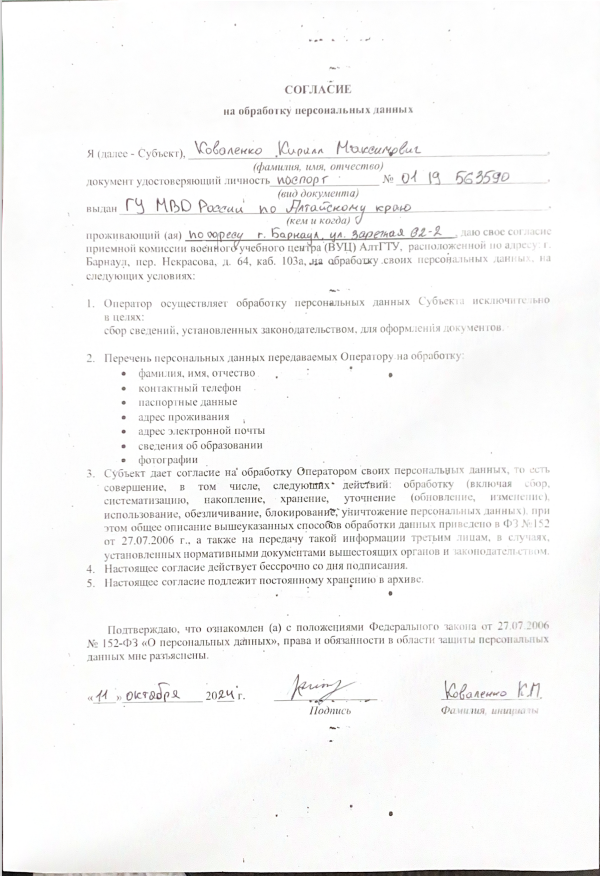 СОГЛАСИЕ
на обработку персональных данных
Я (далее - Субъект), Коваленко Кирилл Максимович,
(фамилия, имя, отчество)
документ удостоверяющий личность паспорт № 01 19 563590,
(вид документа)
выдан ГУ МВД России по Алтайскому краю
(кем и когда)
проживающий (ая) по адресу г. Барнаул, ул. заречная 92-2, даю свое согласие
приемной комиссии военного учебного центра (ВУЦ) АлтГТУ, расположенной по адресу: г.
Барнаул, пер. Некрасова, д. 64, каб. 103а, на обработку своих персональных данных, на
следующих условиях:
1. Оператор осуществляет обработку персональных данных Субъекта исключительно
в целях:
сбор сведений, установленных законодательством, для оформления документов.
2. Перечень персональных данных передаваемых Оператору на обработку:
• фамилия, имя, отчество
• контактный телефон
• паспортные данные
• адрес проживания
• адрес электронной почты
• сведения об образовании
• фотографии
3. Субъект дает согласие на обработку Оператором своих персональных данных, то есть
совершение, в том числе, следующих действий: обработку (включая сбор,
систематизацию, накопление, хранение, уточнение (обновление, изменение),
использование, обезличивание, блокирование, уничтожение персональных данных), при
этом общее описание вышеуказанных способов обработки данных приведено в ФЗ №152
от 27.07.2006 г., а также на передачу такой информации третьим лицам, в случаях,
установленных нормативными документами вышестоящих органов и законодательством.
4. Настоящее согласие действует бессрочно со дня подписания.
5. Настоящее согласие подлежит постоянному хранению в архиве.
Подтверждаю, что ознакомлен (а) с положениями Федерального закона от 27.07.2006
№ 152-ФЗ «О персональных данных», права и обязанности в области защиты персональных
данных мне разъяснены.
«11 » октября 2024 г. Коваленко К.М.
Подпись Фамилия, инициалы